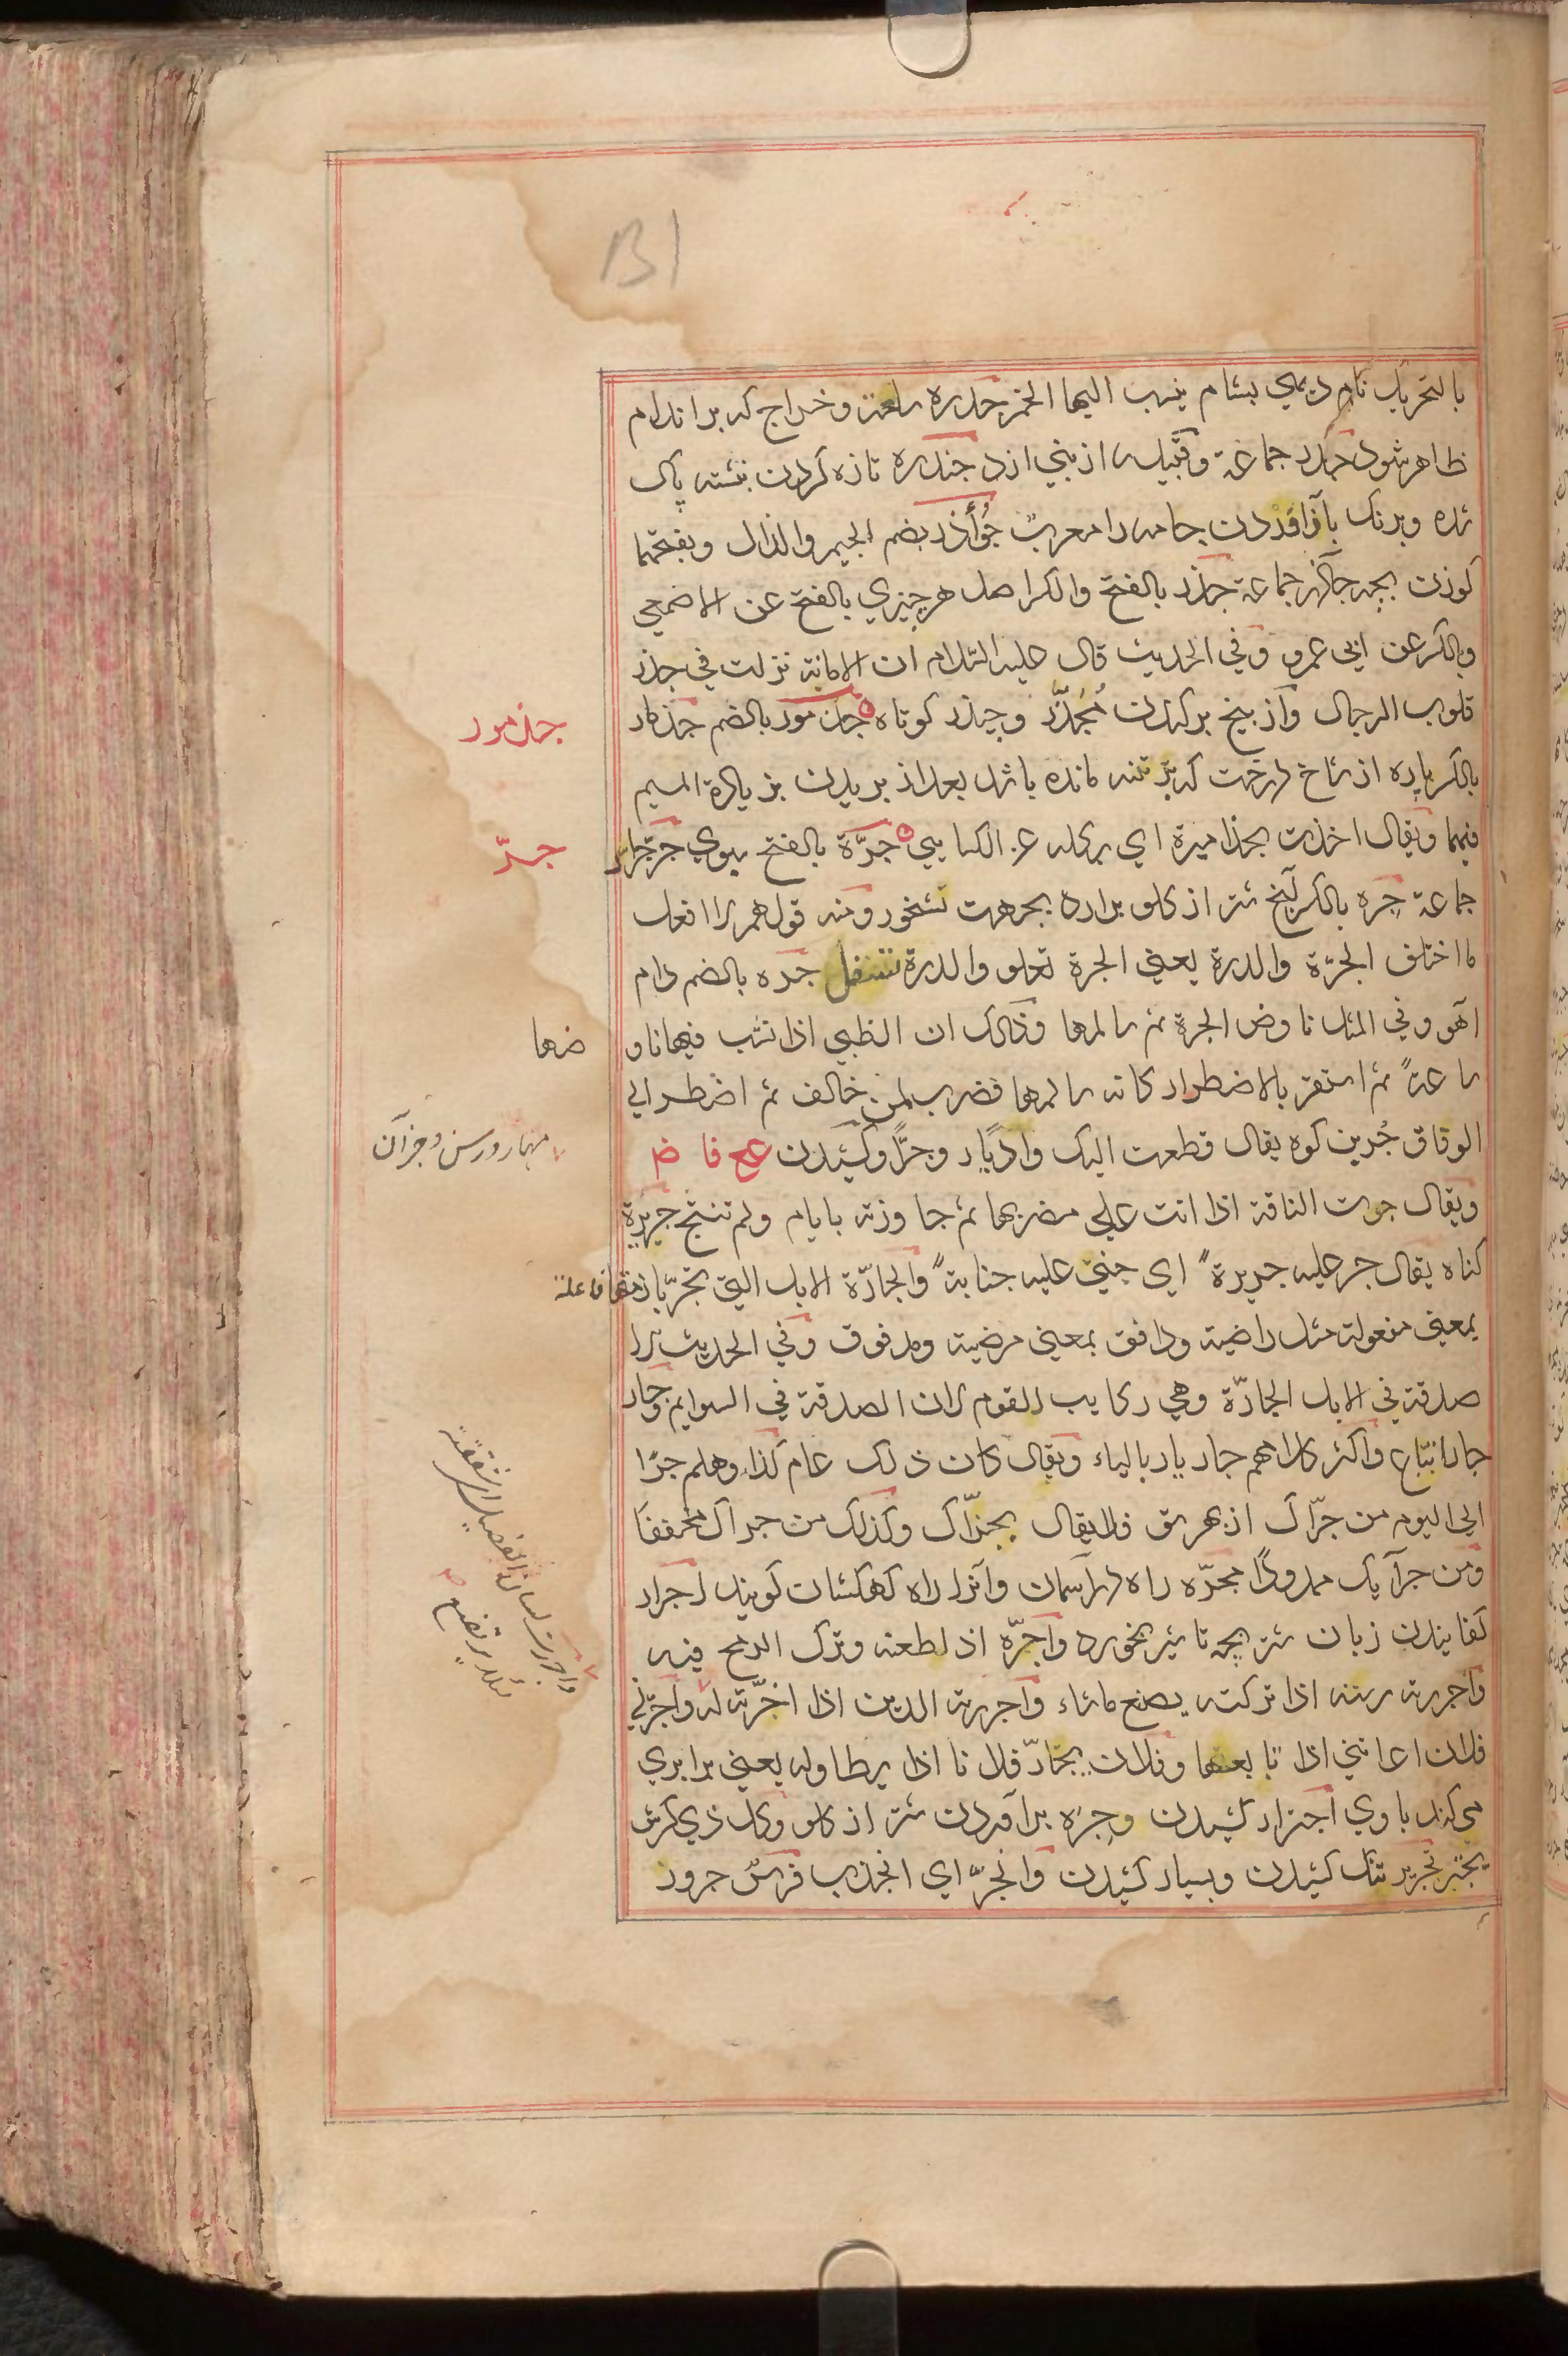 131
بالتحریک نام دیهي بشام ینسب الیها الخمر جدره سلعة و خراج که بر اندام
ظاهر شود جدر جماعة و قبیله از بني ازد جندره تازه کردن نبشته پاک
شده و برنک باز آوردن جامه را معرب جؤذر بضم الجیم والذال وبفتحهما
کوزن بچه جآذر جماعة جذر بالفتح والکسر اصل هر چیزي بالفتح عن الاصمعي
وبالکسر عن ابي عمرو وفي الحدیث قال علیه السلام ان الامانة نزلت في جذر
قلوب الرجال و از بیخ بر کندن مُجَذَّر و جیذر کوتاه جذمور بالضم جذمار
جذمور
بالکسر پاره از شاخ درخت که بر تنه مانده باشد بعد از بریدن بزیادة المیم
فیهما ویقال اخذت بجذامیره اي بکله عن الکسایي جَرَّة بالفتح سبوي جر جرار
جرّ
جماعة جره بالکسر آنچ شتر از کلو برارد بجهت نشخور ومنه قولهم لا افعل
ما اختلف الجرّة والدرة یعني الجرة تعلو والدرة تسفل جره بالضم دام
آهو وفي المثل ناوص الجرة ثم سالمها وذلک ان الظبي اذا نشب فیها ناو
صها
ساعةً ثم استقر بالاضطرار کانه سالمها فضرب لمن خالف ثم اضطر الي
الوفاق جُر بن کوه یقال قطعت الیک وادیًا و جرًّا و کشیدن عح فا ض
مهار ورسن وجز آن
ویقال جرت الناقة اذا اتت علي مضربها ثم جاوزته بایام ولم تنتج جریرة
کناه یقال جر علیه جریرةً اي جنی علیه جنایةً والجارّة الابل التي تجرّ بازمتها فاعلة
بمعني مفعولة مثل راضیة ودافق بمعني مرضیة ومدفوق وفي الحدیث لا
صدقة في الابل الجارّة وهي رکایب القوم لان الصدقة في السوایم وحار
جار اتباع واکثر کلامهم حار یار بالیاء ویقال کان ذلک عام کذا وهلم جرّا
الي الیوم من جرّاک از بهر تو فلا یقال بجرّاک وکذلک من جراک مخففًا
ومن جرآیک ممدودًا مجرّه راه در آسمان وآنرا راه کهکشان کویند اجرار
کفانیدن زبان شتر بچه تا شیر نخورد واجرّه اذا طعنه وترک الرمح فیه
واجررت لسان الفصیل اي شققته
لئلا یرتضع
واجررته رسنه اذا ترکته یصنع ماشاء واجررته الدین اذا اخّرته له واجرّني
فلان اغاني اذا تابعها وفلان یجارّ فلانا اذا یطاوله یعني برابري
می کند با وي اجترار کشیدن و جرّه برآوردن شتر از کلو وکل ذي کرش
یجتر تجریر تنک کشیدن وبسیار کشیدن وانجرّ اي انجذب فرس جرور